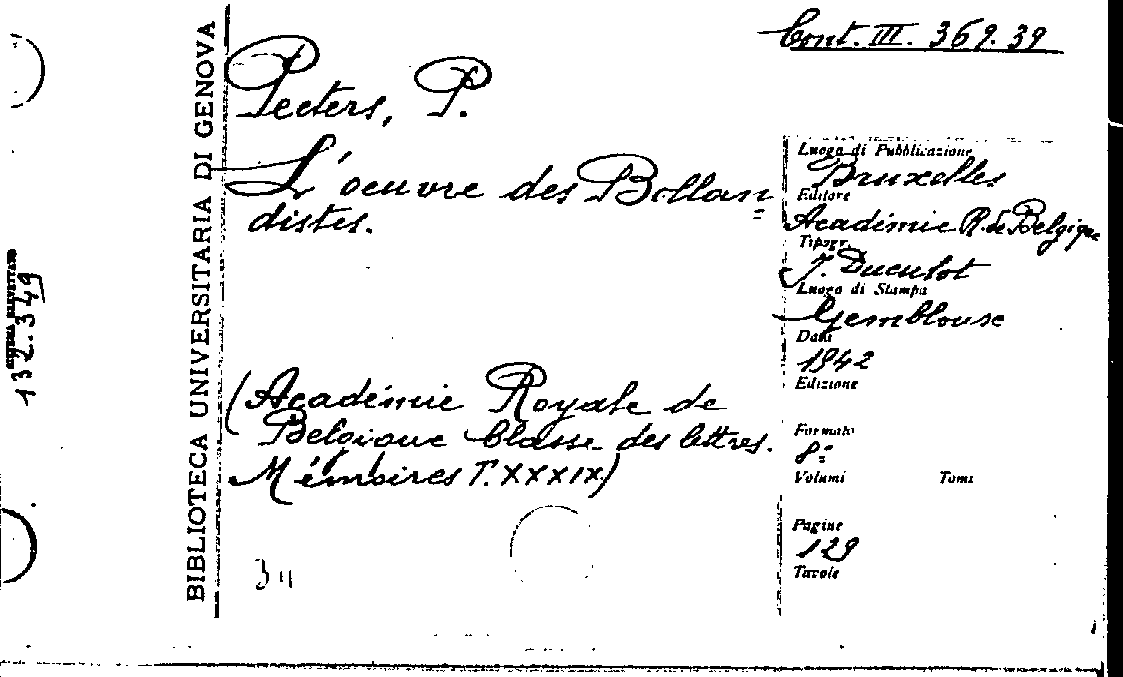 Cont. III. 369.39
BIBLIOTECA UNIVERSITARIA DI GENOVA
132.349
Peeters, P.
L'oeuvre des Bollan=
distes.
(Académie Royale de
Belgique Classe des lettres.
Mémoires T. XXXIX)
Luogo di Pubblicazione
Bruxelles
Editore
Académie R. de Belgique
Tipogr.
J. Duculot
Luogo di Stampa
Gembloux
Data
1942
Edizione
Formato
8º
Volumi Tomi
Pagine
129
Tavole